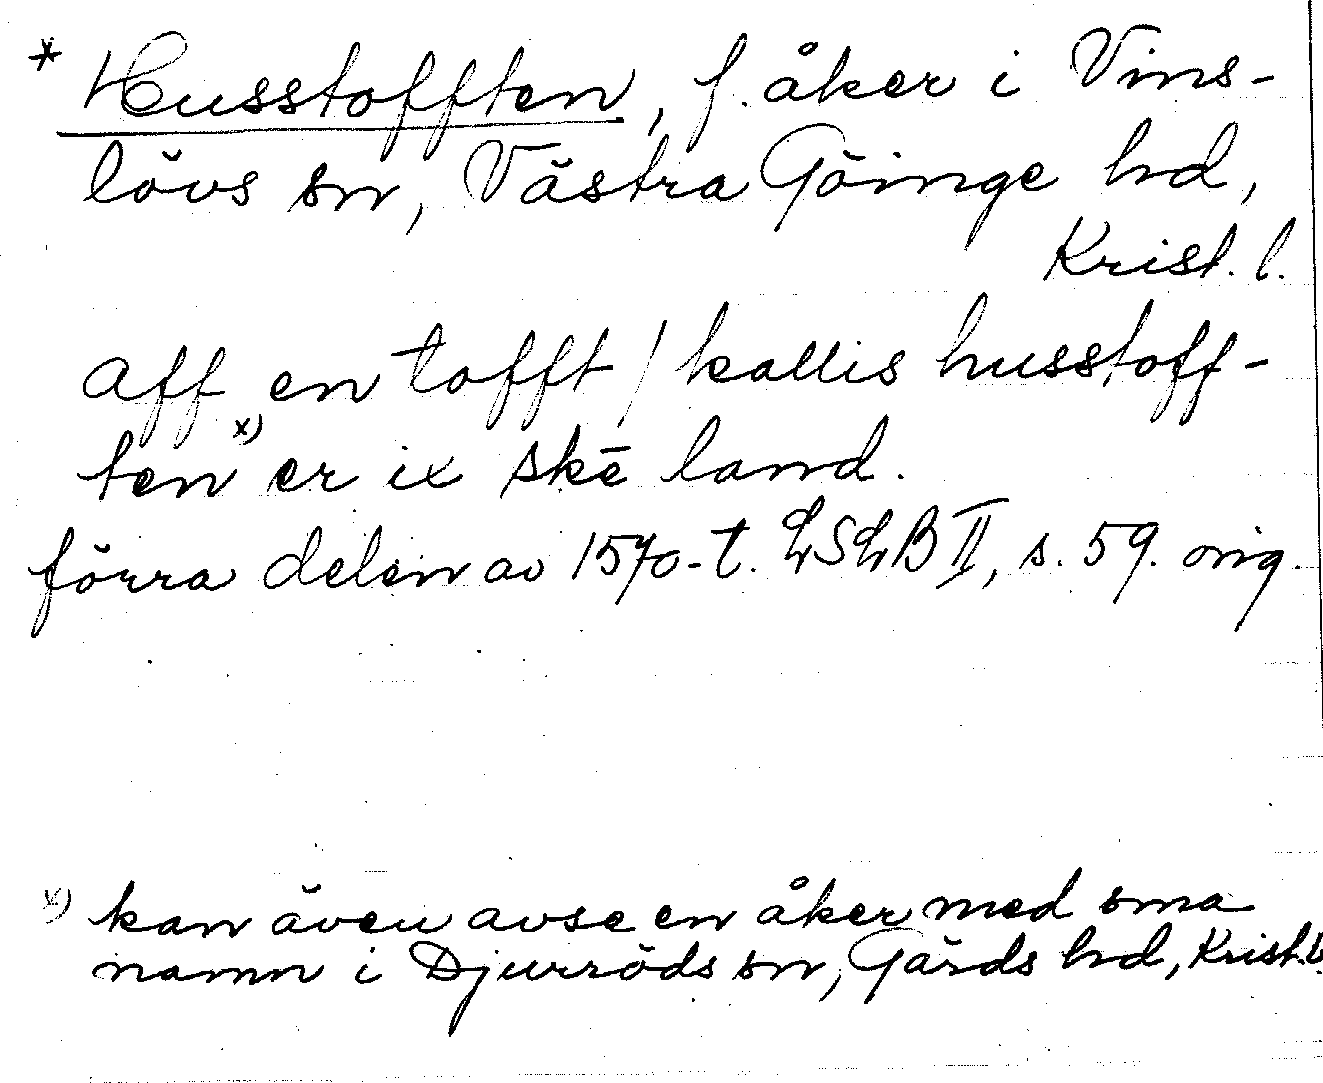 * Husstofften, f. åker i Vins-
lövs sn, Västra Göinge hd,
Krist. l.
Aff en tofft / kallis husstoff-
ten x) er ix skē land.
förra delen av 1570-t. LSLB II, s. 59. orig.
x) kan även avse en åker med sma
namn i Djurröds sn, Gärds hd, Krist. l.